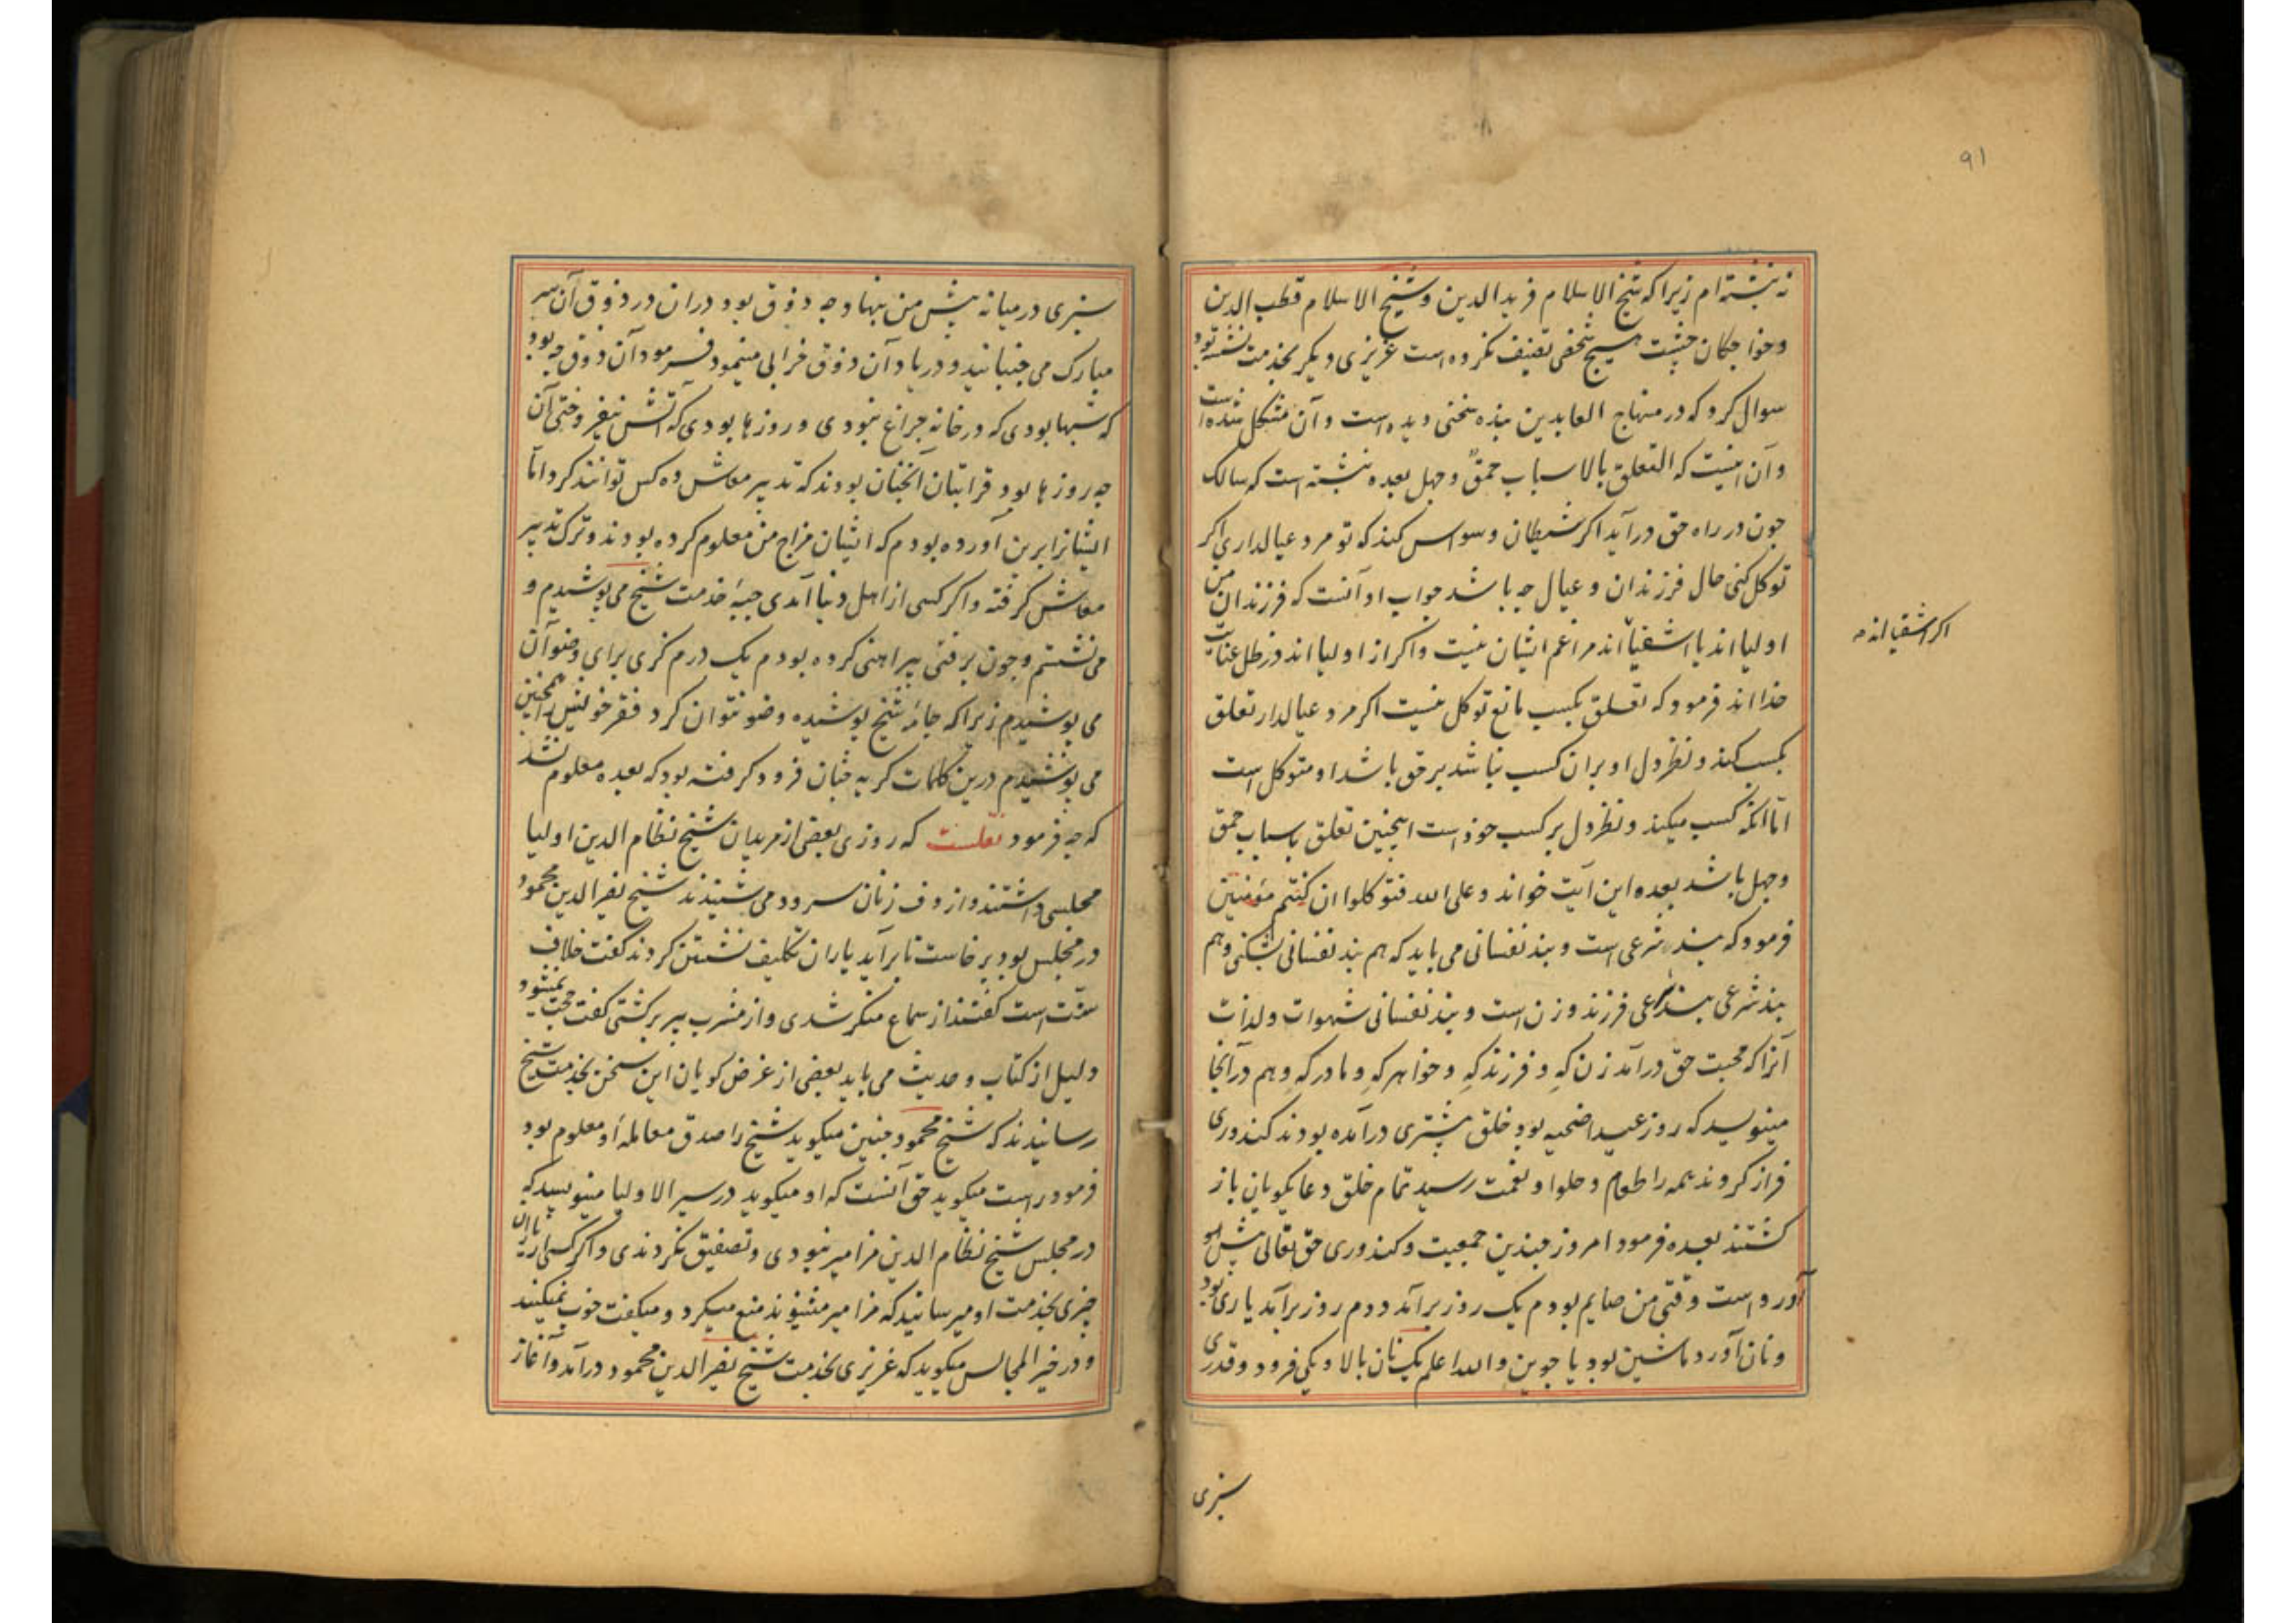 ۹۱
نه نبشته‌ام زیرا که شیخ الاسلام فرید الدین و شیخ الاسلام قطب الدین
و خواجکان چشت هیچ شخصی تصنیف نکرده است عزیزی دیکر بخدمت نشسته بود
سوال کرد که در منهاج العابدین بنده سخنی دیده است و آن مشکل شده است
و آن اینست که التعلق بالاسباب حمق و جهل بعده نبشته است که سالک
چون در راه حق درآید اکر شیطان وسواس کند که تو مرد عیالداری اکر
توکل کنی حال فرزندان و عیال چه باشد جواب او آنست که فرزندان من
اولیا اند یا اشقیا اند مرا غم ایشان نیست و اکر از اولیا اند در ظل عنایت
اکر اشقیا اند
خدا اند فرمود که تعلق بکسب مانع توکل نیست اکر مرد عیالدار تعلق
بکسب کند و نظر دل او بران کسب نباشد بر حق باشد او متوکل است
اما آنکه کسب میکند و نظر دل بر کسب خود است اینچنین تعلق باسباب حمق
و جهل باشد بعده این آیت خواند و علی الله فتوکلوا ان کنتم مؤمنین
فرمود که بند شرعی است و بند نفسانی می باید که هم بند نفسانی بشکنی و هم
بند شرعی بند شرعی فرزند و زن است و بند نفسانی شهوات و لذات
آنرا که محبت حق درآمد زن که و فرزند که و خواهر که و مادر که و هم در آنجا
مینویسد که روز عید اضحیه بود خلق بیشتری درآمده بودند کندوری
فراز کردند همه را طعام و حلوا و نعمت رسید تمام خلق دعا کویان باز
کشتند بعده فرمود امروز چندین جمعیت و کندوری حق تعالی پیش
آورده است وقتی من صایم بودم یک روز برآمد دوم روز برآمد یاری بود
و نان آورد ماشین بود یا جوین والله اعلم یک نان بالا و یکی فرود و قدری
سبزی
سبزی در میانه پیش من بنهاد چه ذوق بود دران در ذوق آن سر
مبارک می جنبانید و دریاد آن ذوق خرابی مینمود فرمود آن ذوق چه بود
که شبها بودی که در خانه چراغ نبودی و روزها بودی که آتش نیفروختی آن
چه روزها بود قرابتان آنچنان بودند که تدبیر معاش ده کس توانند کرد اما
ایشانرا برین آورده بودم که ایشان مزاج من معلوم کرده بودند و ترک تدبیر
معاش کرفته و اکر کسی از اهل دنیا آمدی جبهٔ خدمت شیخ می پوشیدم و
می نشستم و چون برفتی پیراهنی کرده بودم یک درم کزی برای وضو آن
می پوشیدم زیرا که جامهٔ شیخ پوشیده وضو نتوان کرد فقر خویش را همچنین
می پوشیدم درین کلمات کریه چنان فرود کرفته بود که بعده معلوم نشد
که چه فرمود نقلست که روزی بعضی از مریدان شیخ نظام الدین اولیا
مجلسی داشتند و از دف زنان سرود می شنیدند شیخ نصیر الدین محمود
در مجلس بود برخاست تا برآید یاران تکلیف نشستن کردند کفت خلاف
سنت است کفتند از سماع منکر شدی و از مشرب پیر برکشتی کفت حجت نمیشود
دلیل از کتاب و حدیث می باید بعضی از غرض کویان این سخن بخدمت شیخ
رسانیدند که شیخ محمود چنین میکوید شیخ را صدق معاملهٔ او معلوم بود
فرمود راست میکوید حق آنست که او میکوید در سیر الاولیا مینویسد که
در مجلس شیخ نظام الدین مزامیر نبودی و تصفیق نکردندی و اکر کسی از یاران
چیزی بخدمت او میرسانید که مزامیر میشنوند منع میکرد و میکفت خوب نمیکنند
و در خیر المجالس میکوید که عزیزی بخدمت شیخ نصیر الدین محمود درآمد و آغاز